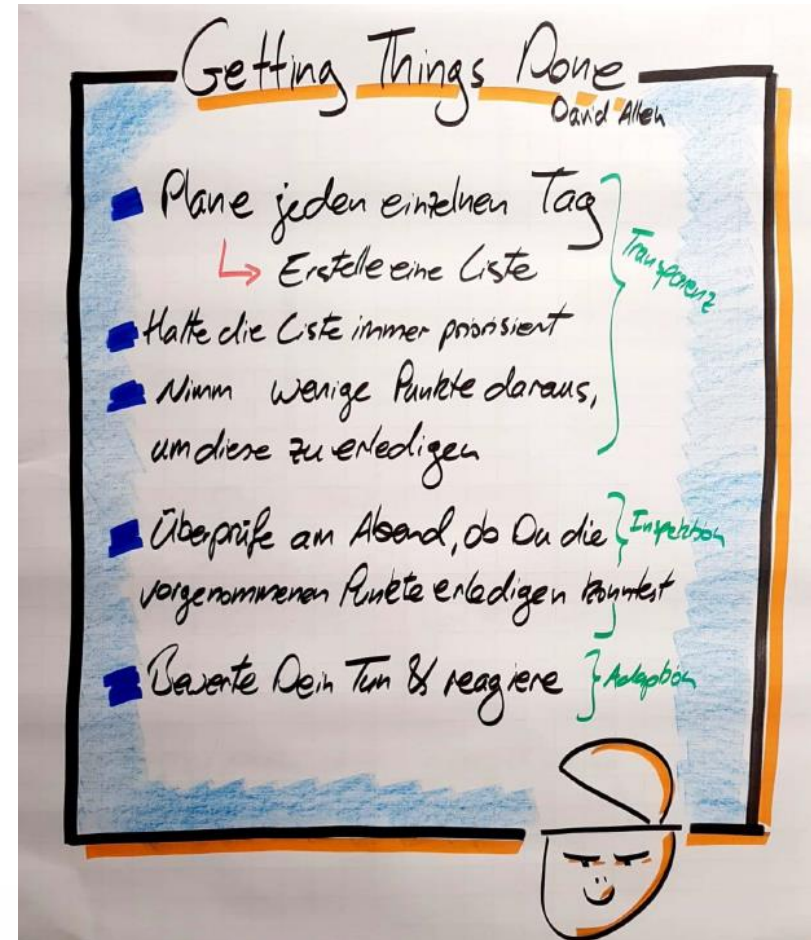 Getting Things Done
David Allen
Plane jeden einzelnen Tag
Erstelle eine Liste
Transparenz
Halte die Liste immer priorisiert
Nimm wenige Punkte daraus,
um diese zu erledigen
Überprüfe am Abend, ob Du die
Inspektion
vorgenommenen Punkte erledigen konntest
Bewerte Dein Tun & reagiere
Adaption